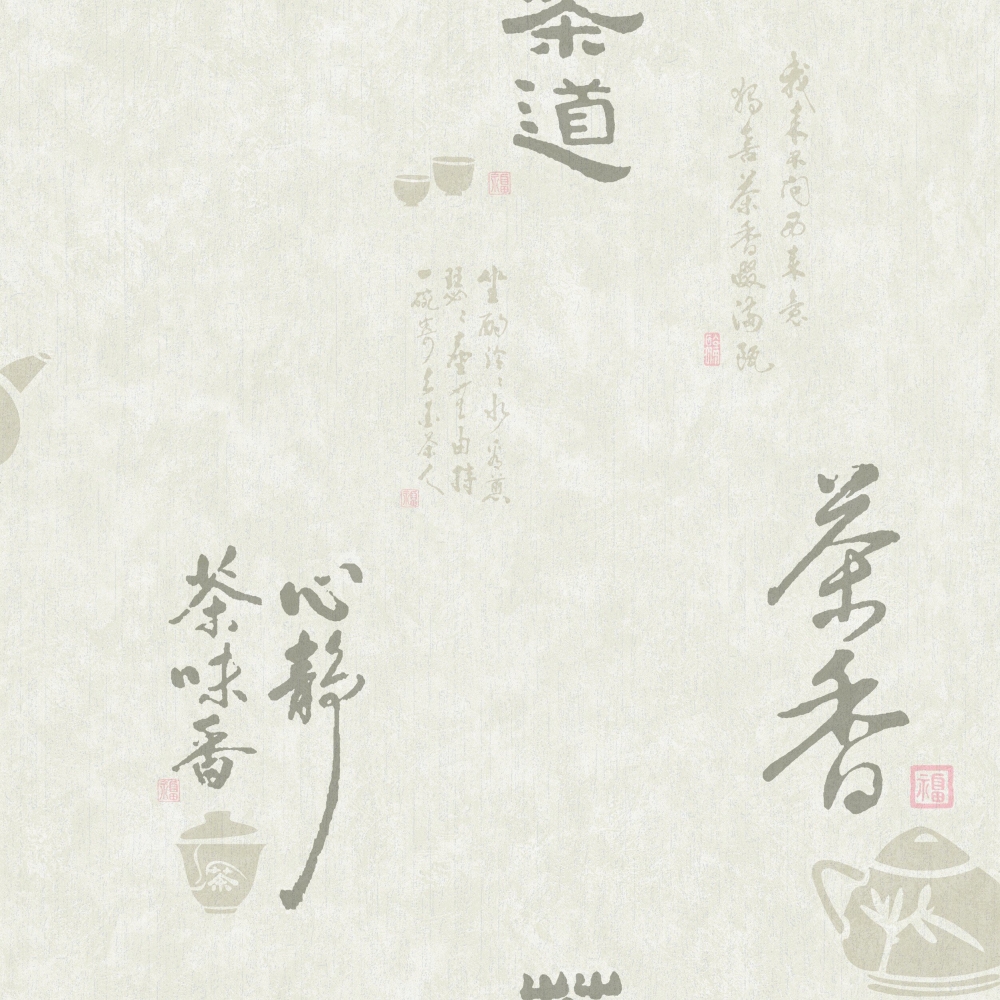 茶道
福
我来不问西来意
独喜茶香啜满瓯
坐酌泠〻水看煎
瑟〻塵無由持
一碗寄与爱茶人
福
心静
茶味香
福
茶
茶香
福